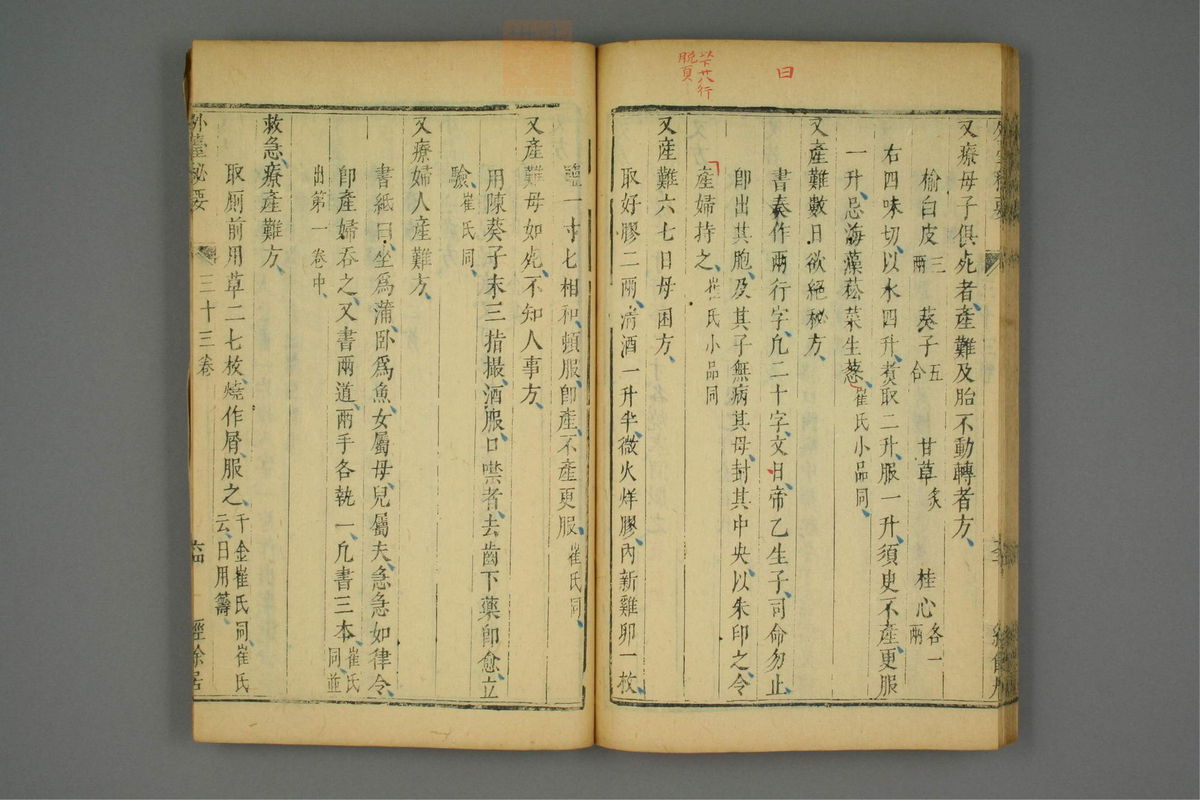 曰
以下廿八行
脱頁
又療母子俱死者產難及胎不動轉者方
榆白皮三兩 葵子五合 甘草炙 桂心各一兩
右四味切以水四升煑取二升服一升須臾不產更服
一升忌海藻菘菜生葱崔氏小品同
又產難數日欲絕秘方
書奏作兩行字凡二十字文曰帝乙生子司命勿止
即出其胞及其子無病其母封其中央以朱印之令
產婦持之崔氏小品同
又產難六七日母困方
取好膠二兩清酒一升半微火烊膠內新雞卵一枚
鹽一寸匕相和頓服即產不產更服崔氏同
又產難母如死不知人事方
用陳葵子末三指撮酒服口噤者去齒下藥即愈立
驗崔氏同
又療婦人產難方
書紙曰坐爲蒲臥爲魚女屬母兒屬夫急急如律令
即產婦吞之又書兩道兩手各執一凡書三本崔氏同並
出第一卷中
救急療產難方
取厠前用草二七枚燒作屑服之千金崔氏同崔氏云日用籌
外臺秘要 三十三卷 六四 經餘居